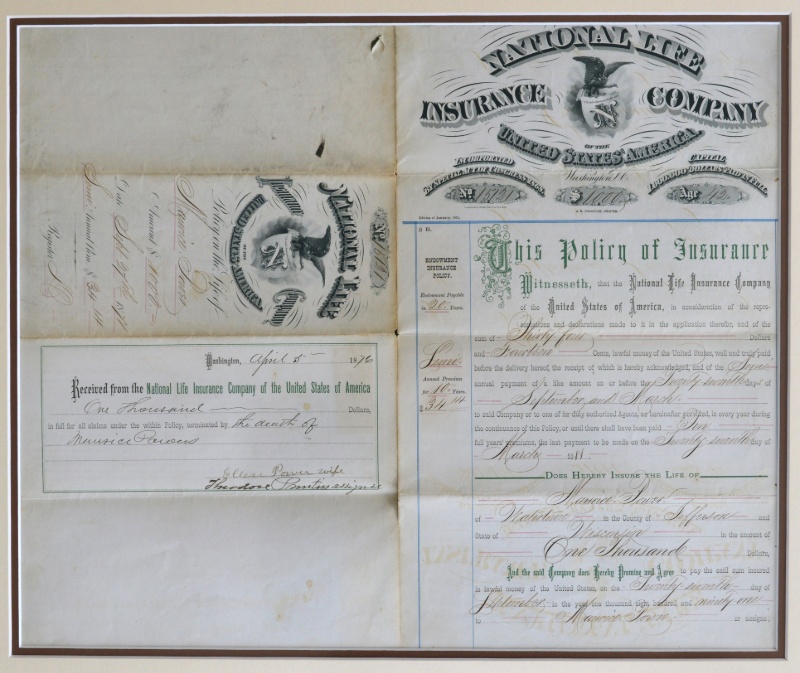 NATIONAL LIFE
INSURANCE COMPANY
OF THE
UNITED STATES AMERICA.
INCORPORATED
BY SPECIAL ACT OF CONGRESS 1868.
Washington, D.C.
CAPITAL
1,000,000 DOLLARS PAID IN FULL.
No.
$ 1000
Age 42
Edition of January, 1871.
$ 1M.
ENDOWMENT
INSURANCE
POLICY.
Endowment Payable
in 20 Years.
Semi
Annual Premium
for 10 Years.
$ 34 14
This Policy of Insurance
Witnesseth, that the National Life Insurance Company
of the United States of America, in consideration of the repre-
sentations and declarations made to it in the application therefor, and of the
sum of Thirty four Dollars
and Fourteen Cents, lawful money of the United States, well and truly paid
before the delivery hereof, the receipt of which is hereby acknowledged, and of the Semi
annual payment of a like amount on or before the Twenty ninth day of
September and March
to said Company or to one of its duly authorized Agents, or hereinafter provided, in every year during
the continuance of this Policy, or until there shall have been paid Ten
full years' premiums, the last payment to be made on the Twenty ninth day of
March 1881.
DOES HEREBY INSURE THE LIFE OF
Maurice Power
of Watertown in the County of Jefferson and
State of Wisconsin in the amount of
One Thousand Dollars,
And the said Company does Hereby Promise and Agree to pay the said sum insured
in lawful money of the United States, on the Twenty ninth day of
September in the year one thousand eight hundred and ninety one
to Maurice Power or assigns;
No.
NATIONAL LIFE
Insurance Company
UNITED STATES AMERICA
Policy on the life of
Maurice Power
Amount $ 1000
Date Sept 29th 1871
Semi Annual Prem $ 34 14
Register
Washington, April 5 1876
Received from the National Life Insurance Company of the United States of America
One Thousand Dollars,
in full for all claims under the within Policy, terminated by the death of
Maurice Powers
Ellen Power wife
Theodore Prentiss assignee